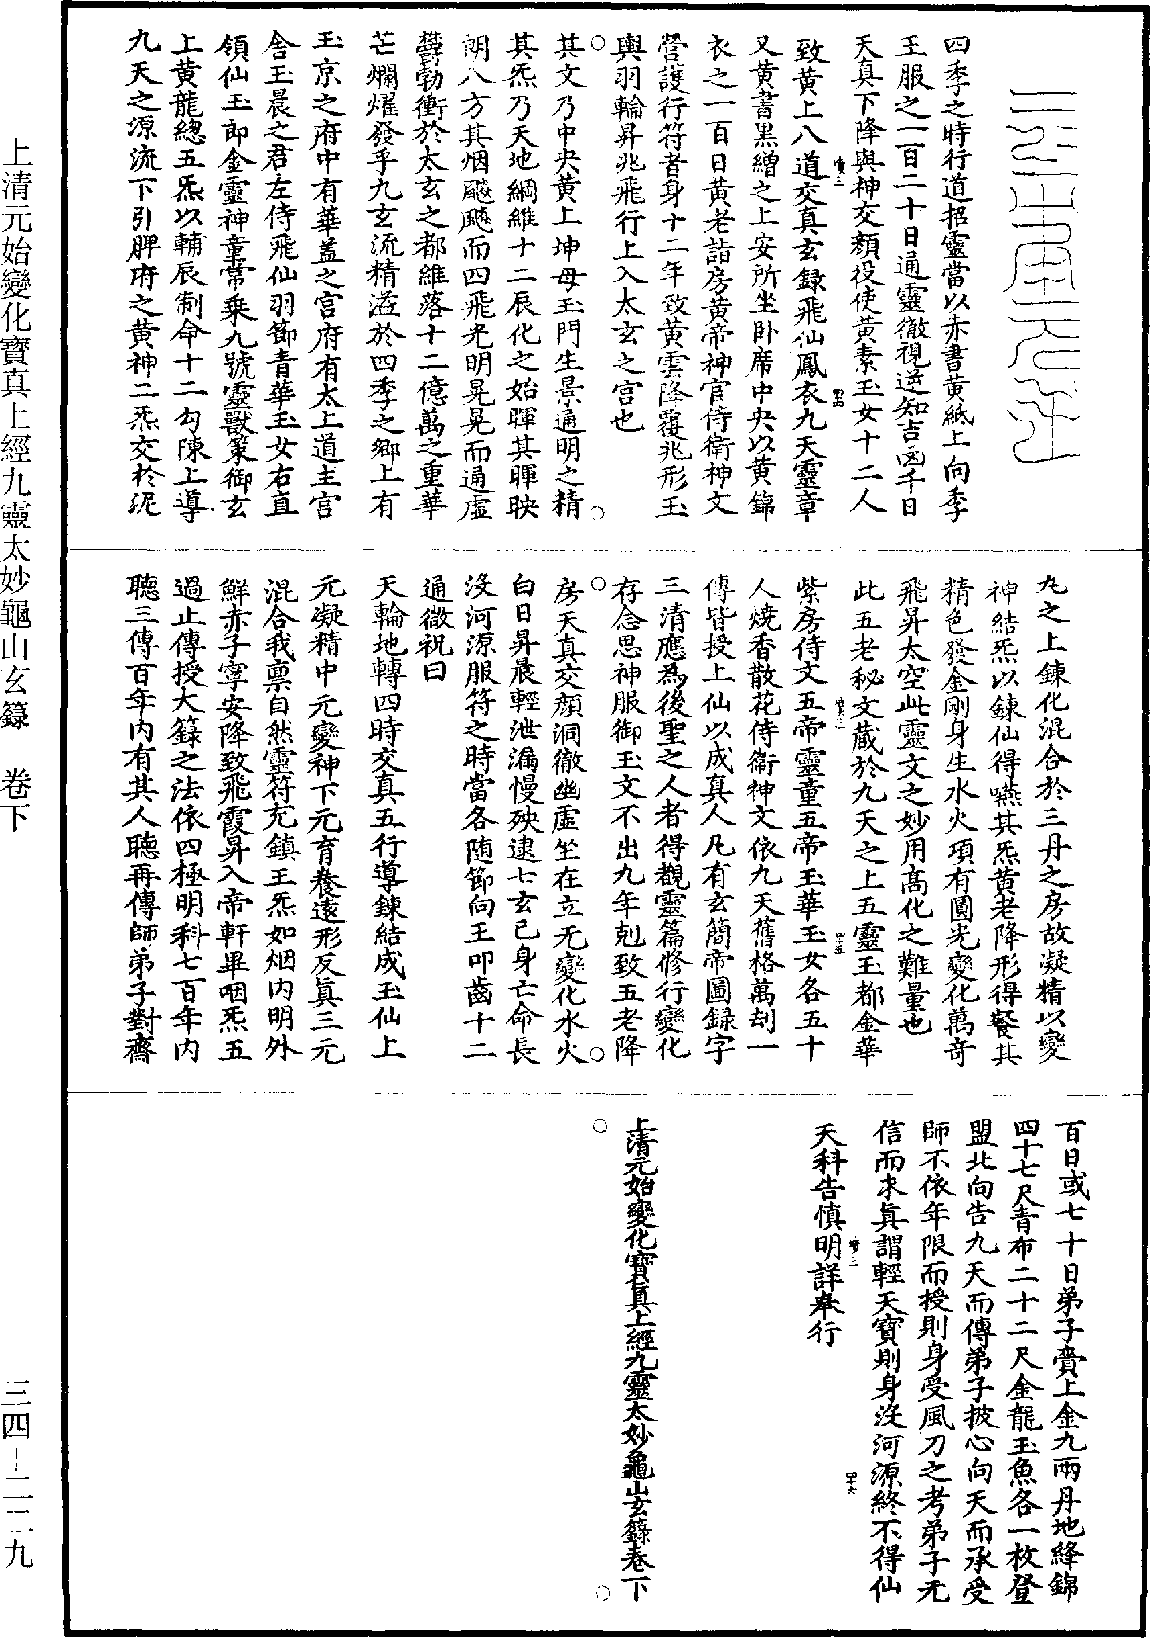 四季之時行道招靈當以赤書黄紙上向季
王服之一百二十日通靈徹視逆知吉凶千日
天真下降與神交顔役使黄素玉女十二人
致黄上八道交真玄録飛仙鳳衣九天靈章
又黄書黒繒之上安所坐卧席中央以黄錦
衣之一百日黄老詣房黄帝神官侍衛神文
營護行符者身十二年致黄雲降覆兆形玉
輿羽輪昇兆飛行上入太玄之宫也
其文乃中央黄上坤母玉門生景通明之精
其炁乃天地綱維十二辰化之始暉其暉映
朗八方其烟飈飈而四飛光明晃晃而通虚
欝勃衝於太玄之都維落十二億萬之重華
芒爛燿發乎九玄流精溢於四季之郷上有
玉京之府中有華盖之宫府有太上道主宫
舎玉晨之君左侍飛仙羽節青華玉女右直
領仙玉郎金靈神童常乗九號靈獸策御玄
上黄龍總五炁以輔辰制命十二勾陳上導
九天之源流下引脾府之黄神二炁交於泥
丸之上錬化混合於三丹之房故凝精以變
神結炁以錬仙得嚥其炁黄老降形得餐其
精色發金剛身生水火項有圓光變化萬竒
飛昇太空此靈文之妙用高化之難量也
此五老秘文藏於九天之上五靈玉都金華
紫房侍文五帝靈童五帝玉華玉女各五十
人燒香散花侍衛神文依九天舊格萬刧一
傳皆授上仙以成真人凡有玄簡帝圖録字
三清應為後聖之人者得觀靈篇修行變化
存念思神服御玉文不出九年剋致五老降
房天真交顔洞徹幽虚坐在立无變化水火
白日昇晨輕泄漏慢殃逮七玄已身亡命長
没河源服符之時當各随節向王叩齒十二
通微祝曰
天輪地轉四時交真五行導錬結成玉仙上
元凝精中元變神下元育養遠形反真三元
混合我禀自然靈符充鎮王炁如烟内明外
鮮赤子寧安降致飛霞昇入帝軒畢咽炁五
過止傳授大籙之法依四極明科七百年内
聽三傳百年内有其人聽再傳師弟子對齋
百日或七十日弟子賷上金九兩丹地絳錦
四十七尺青布二十二尺金龍玉魚各一枚登
盟北向告九天而傳弟子披心向天而承受
師不依年限而授則身受風刀之考弟子无
信而求真謂輕天寶則身没河源終不得仙
天科告慎明詳奉行
上清元始變化寶真上經九靈太妙龜山玄籙卷下
上清元始變化寶真上經九靈太妙龜山玄籙 卷下
三四-二二九